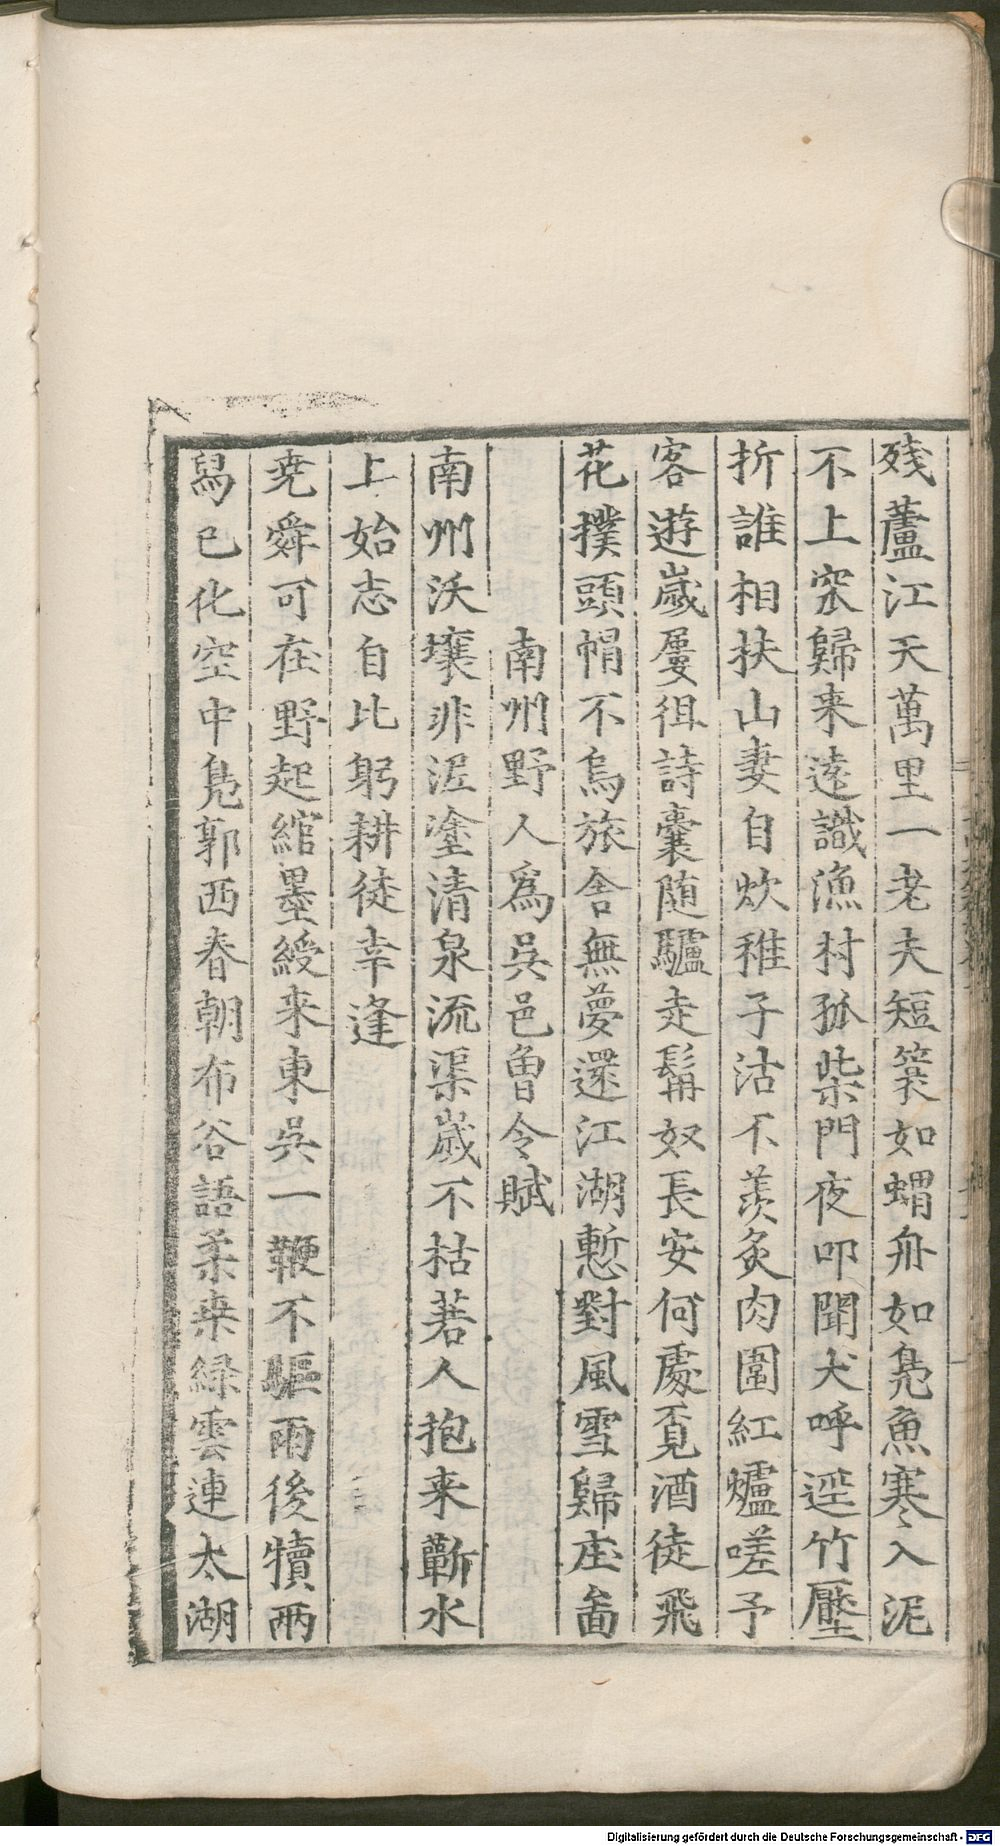 残蘆江天萬里一老夫短蓑如蝟舟如鳧魚寒入泥
不上罙歸来遠識漁村孤柴門夜叩聞犬呼逕竹壓
折誰相扶山妻自炊稚子沽不羨炙肉圍紅爐嗟予
客遊歲屢徂詩囊随驢走髯奴長安何處覔酒徒飛
花撲頭帽不烏旅舍無夢還江湖慙對風雪歸庄啚
南州野人爲吳邑魯令賦
南州沃壤非泥塗清泉流渠歲不枯若人抱来蘄水
上始志自比躬耕徒幸逢
尭舜可在野起綰墨綬来東吳一鞭不驅雨後犢兩
舄已化空中鳧郭西春朝布谷語柔桒緑雲連太湖
Digitalisierung gefördert durch die Deutsche Forschungsgemeinschaft - DFG